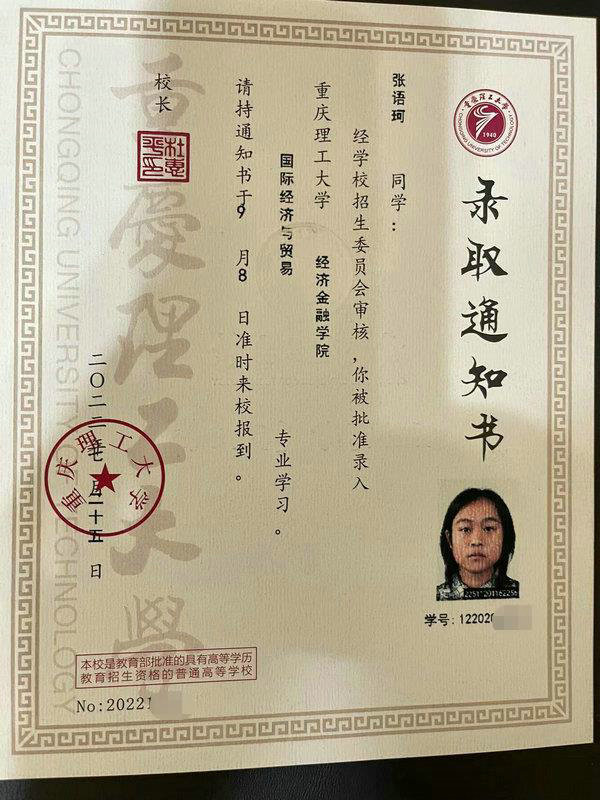 重庆理工大学
CHONGQING UNIVERSITY OF TECHNOLOGY
1940
录取通知书
张语珂 同学：
经学校招生委员会审核，你被批准录入
重庆理工大学 经济金融学院
国际经济与贸易 专业学习。
请持通知书于9月8日准时来校报到。
校长
二〇二二年七月二十五日
重庆理工大学
CHONGQING UNIVERSITY OF TECHNOLOGY
学号：122020
本校是教育部批准的具有高等学历
教育招生资格的普通高等学校
No:20221